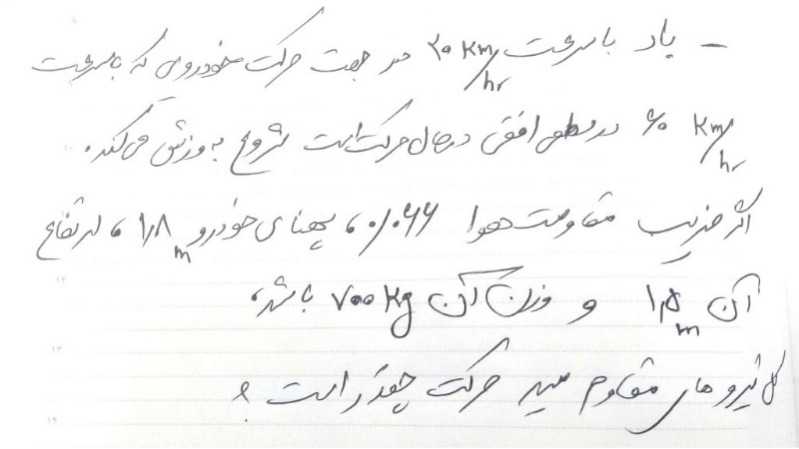 - باد با سرعت ۲۰ km/hr در جهت حرکت خودروی که با سرعت
km/hr در سطح افقی در حال حرکت است شروع به وزش می‌کند.
اگر ضریب مقاومت هوا ۰/۰۶۶، پهنای خودرو ۱/۸ m، ارتفاع
آن ۱/۵ m و وزن آن ۷۰۰ kg باشد،
کل نیروهای مقاوم مسیر حرکت چقدر است؟